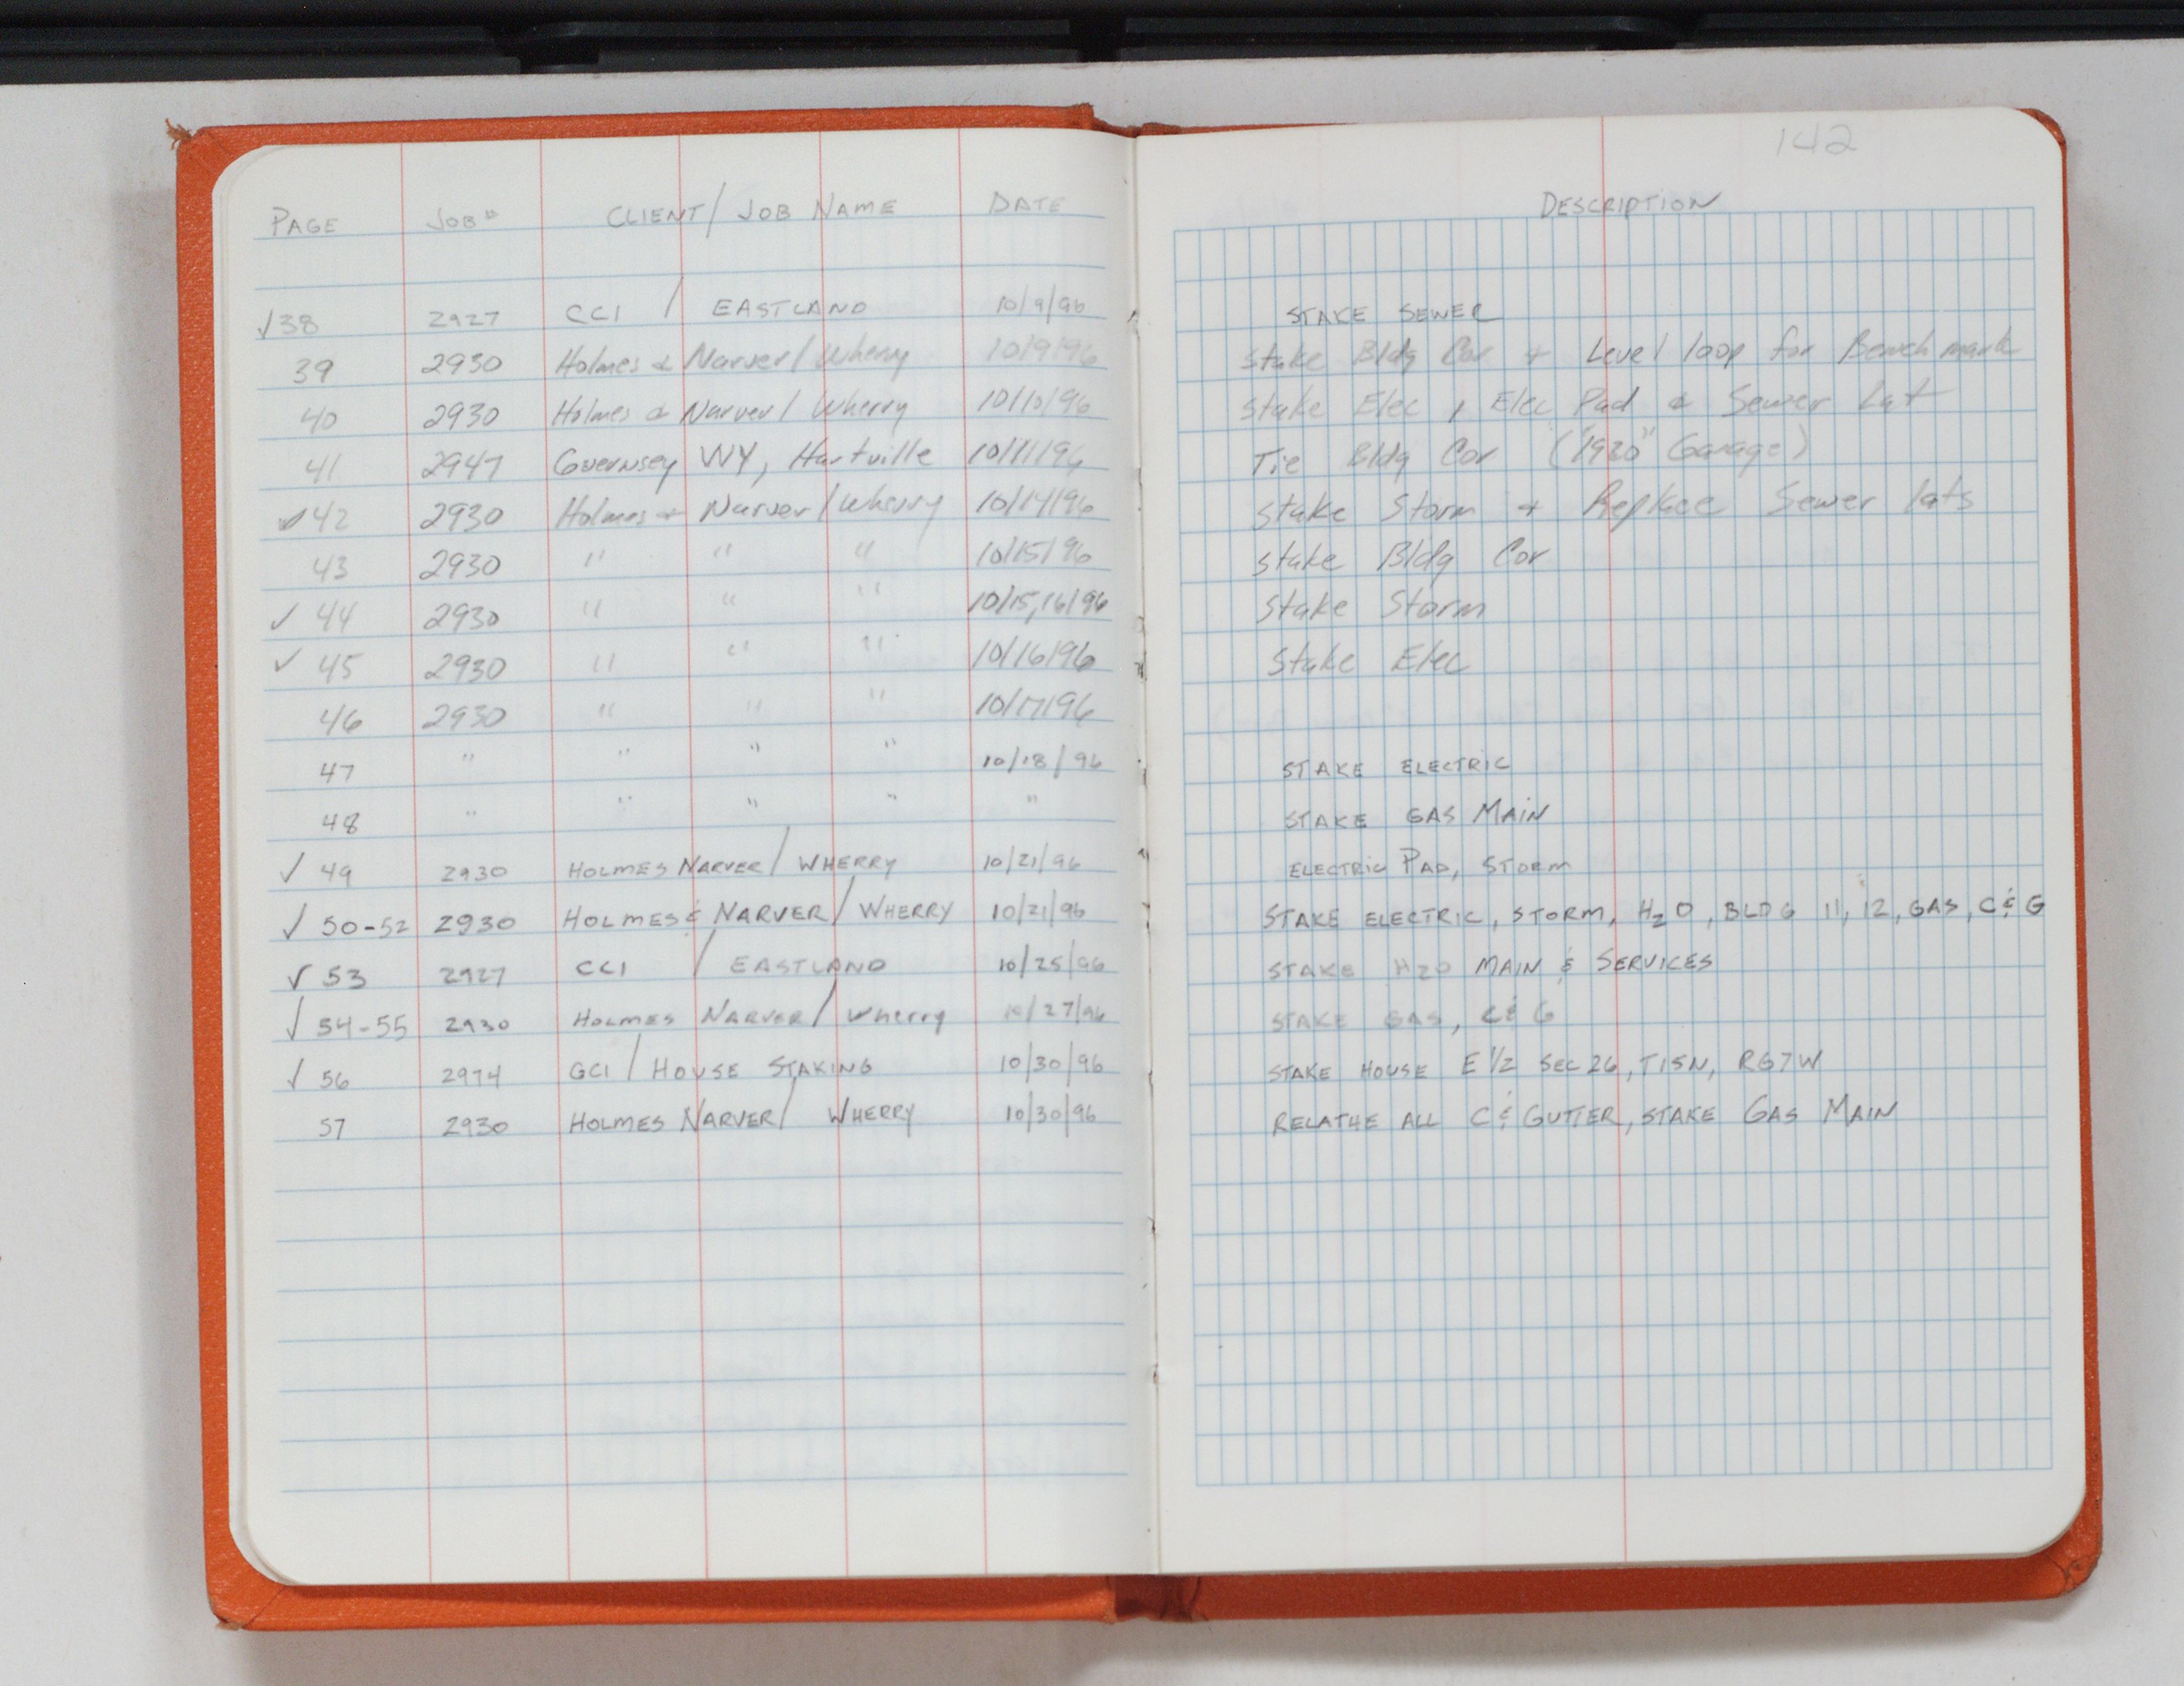 142
PAGE JOB# CLIENT/JOB NAME DATE DESCRIPTION
✓38 2927 CCI / EASTLAND 10/9/96 STAKE SEWER
39 2930 Holmes & Narver/Wherry 10/9/96 Stake Bldg Cor + Level loop for Bench mark
40 2930 Holmes & Narver/Wherry 10/10/96 Stake Elec, Elec Pad & Sewer Lat
41 2947 Guernsey WY, Hartville 10/11/96 Tie Bldg Cor ("1920" Garage)
✓42 2930 Holmes + Narver/Wherry 10/14/96 Stake Storm + Replace Sewer lats
43 2930 " " " 10/15/96 Stake Bldg Cor
✓ 44 2930 " " " 10/15,16/96 Stake Storm
✓ 45 2930 " " " 10/16/96 Stake Elec
46 2930 " " " 10/17/96
47 " " " " 10/18/96 STAKE ELECTRIC
48 " " " " " STAKE GAS MAIN
✓ 49 2930 HOLMES NARVER/WHERRY 10/21/96 ELECTRIC PAD, STORM
✓ 50-52 2930 HOLMES & NARVER/WHERRY 10/21/96 STAKE ELECTRIC, STORM, H2O, BLDG 11, 12, GAS, C & G
✓ 53 2927 CCI / EASTLAND 10/25/96 STAKE H2O MAIN & SERVICES
✓ 54-55 2930 HOLMES NARVER/Wherry 10/27/96 STAKE GAS, C & G
✓ 56 2974 GCI / HOUSE STAKING 10/30/96 STAKE HOUSE E 1/2 SEC 26, T15N, R67W
57 2930 HOLMES NARVER/ WHERRY 10/30/96 RELATHE ALL C & GUTTER, STAKE GAS MAIN